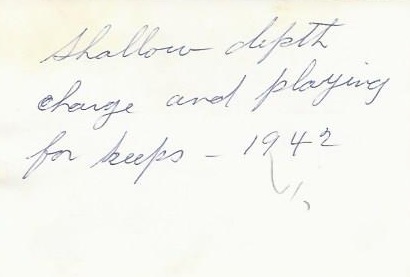 Shallow depth
charge and playing
for keeps - 1942